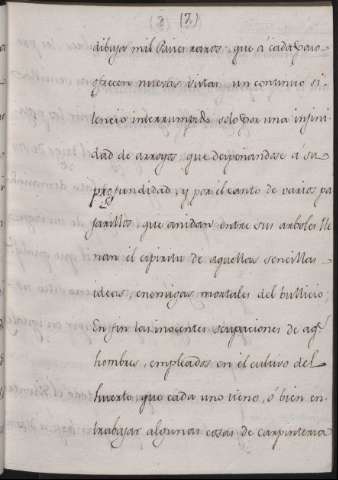 (2) (2)
dibuja mil Paises raros, que á cada paso
ofrecen nuevas vistas: un continuo si-
lencio interrumpido solo por una infini-
dad de arroyos, que despeñandose á su
profundidad, y por el canto de varios pa-
jarillos, que anidan entre sus arboles, lle-
nan el espiritu de aquellas sencillas
ideas, enemigas mortales del bullicio;
En fin las inocentes ocupaciones de aq.^s
hombres, empleados en el cultivo del
huerto, que cada uno tiene, ó bien en
trabajar algunas cosas de carpinteria